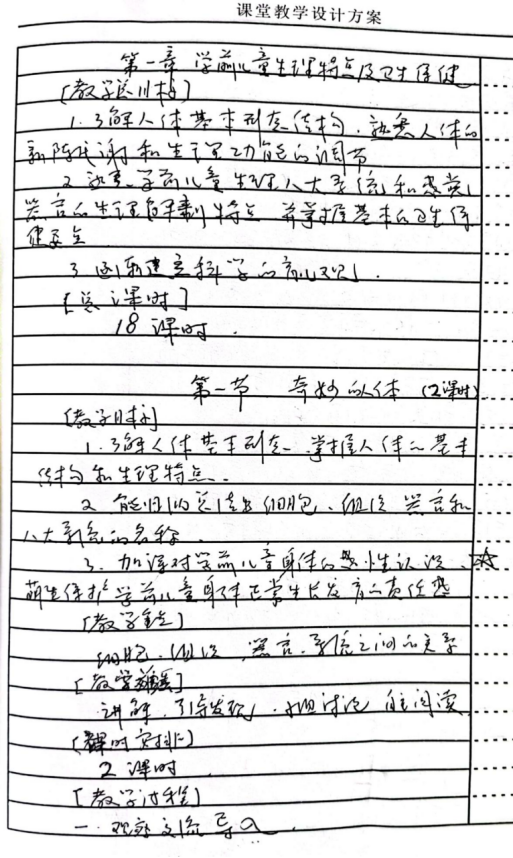 课堂教学设计方案
第一章 学前儿童生理特点及卫生保健
[教学总目标]
1. 了解人体基本形态结构，熟悉人体的
新陈代谢和生理功能的调节
2. 熟悉学前儿童生理八大系统和感觉
器官的生理解剖特点 并掌握基本的卫生保
健要点
3. 逐渐建立科学的育儿观.
[总课时]
18课时.
第一节 奇妙的人体 (2课时)
[教学目标]
1. 了解人体基本形态. 掌握人体的基本
结构和生理特点.
2. 能归纳总结出细胞、组织 器官和
八大系统的名称
3. 加深对学前儿童身体的感性认识、
萌生保护学前儿童身体正常生长发育的责任感
[教学重点]
细胞、组织、器官、系统之间的关系
[教学]
讲解、引导发现、小组讨论 自主阅读
[课时安排]
2课时
[教学过程]
一. 观察交流导入.